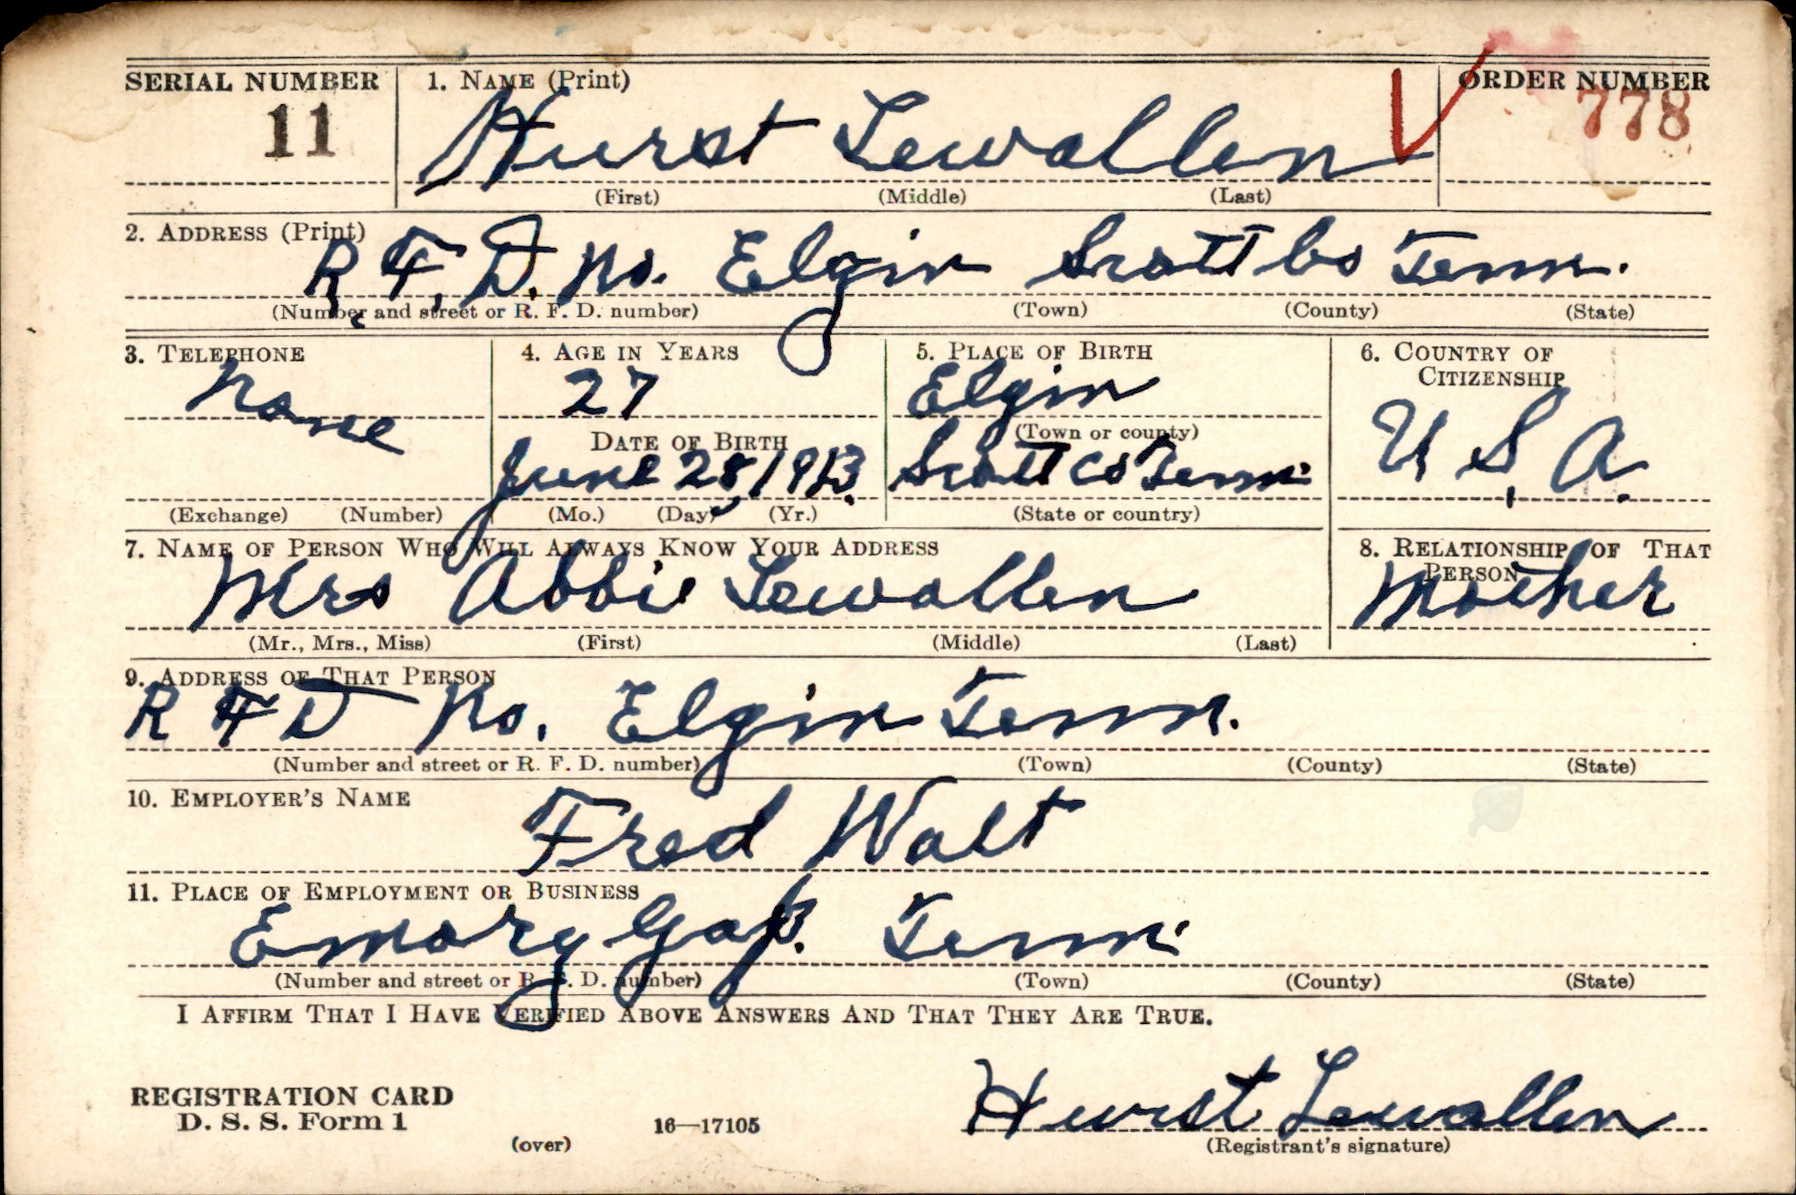 SERIAL NUMBER 1. NAME (Print) ORDER NUMBER
11 Hurst Lewallen 778
(First) (Middle) (Last)
2. ADDRESS (Print)
R. F. D. No. Elgin Scott Co Tenn.
(Number and street or R. F. D. number) (Town) (County) (State)
3. TELEPHONE 4. AGE IN YEARS 5. PLACE OF BIRTH 6. COUNTRY OF
CITIZENSHIP
None 27 Elgin U. S. A.
DATE OF BIRTH (Town or county)
June 28, 1913. Scott Co Tenn.
(Exchange) (Number) (Mo.) (Day) (Yr.) (State or country)
7. NAME OF PERSON WHO WILL ALWAYS KNOW YOUR ADDRESS 8. RELATIONSHIP OF THAT
PERSON
Mrs Abbie Lewallen Mother
(Mr., Mrs., Miss) (First) (Middle) (Last)
9. ADDRESS OF THAT PERSON
R F D No. Elgin Tenn.
(Number and street or R. F. D. number) (Town) (County) (State)
10. EMPLOYER'S NAME
Fred Walt
11. PLACE OF EMPLOYMENT OR BUSINESS
Emory Gap. Tenn.
(Number and street or R. F. D. number) (Town) (County) (State)
I AFFIRM THAT I HAVE VERIFIED ABOVE ANSWERS AND THAT THEY ARE TRUE.
REGISTRATION CARD
D. S. S. Form 1 16—17105 Hurst Lewallen
(over) (Registrant's signature)